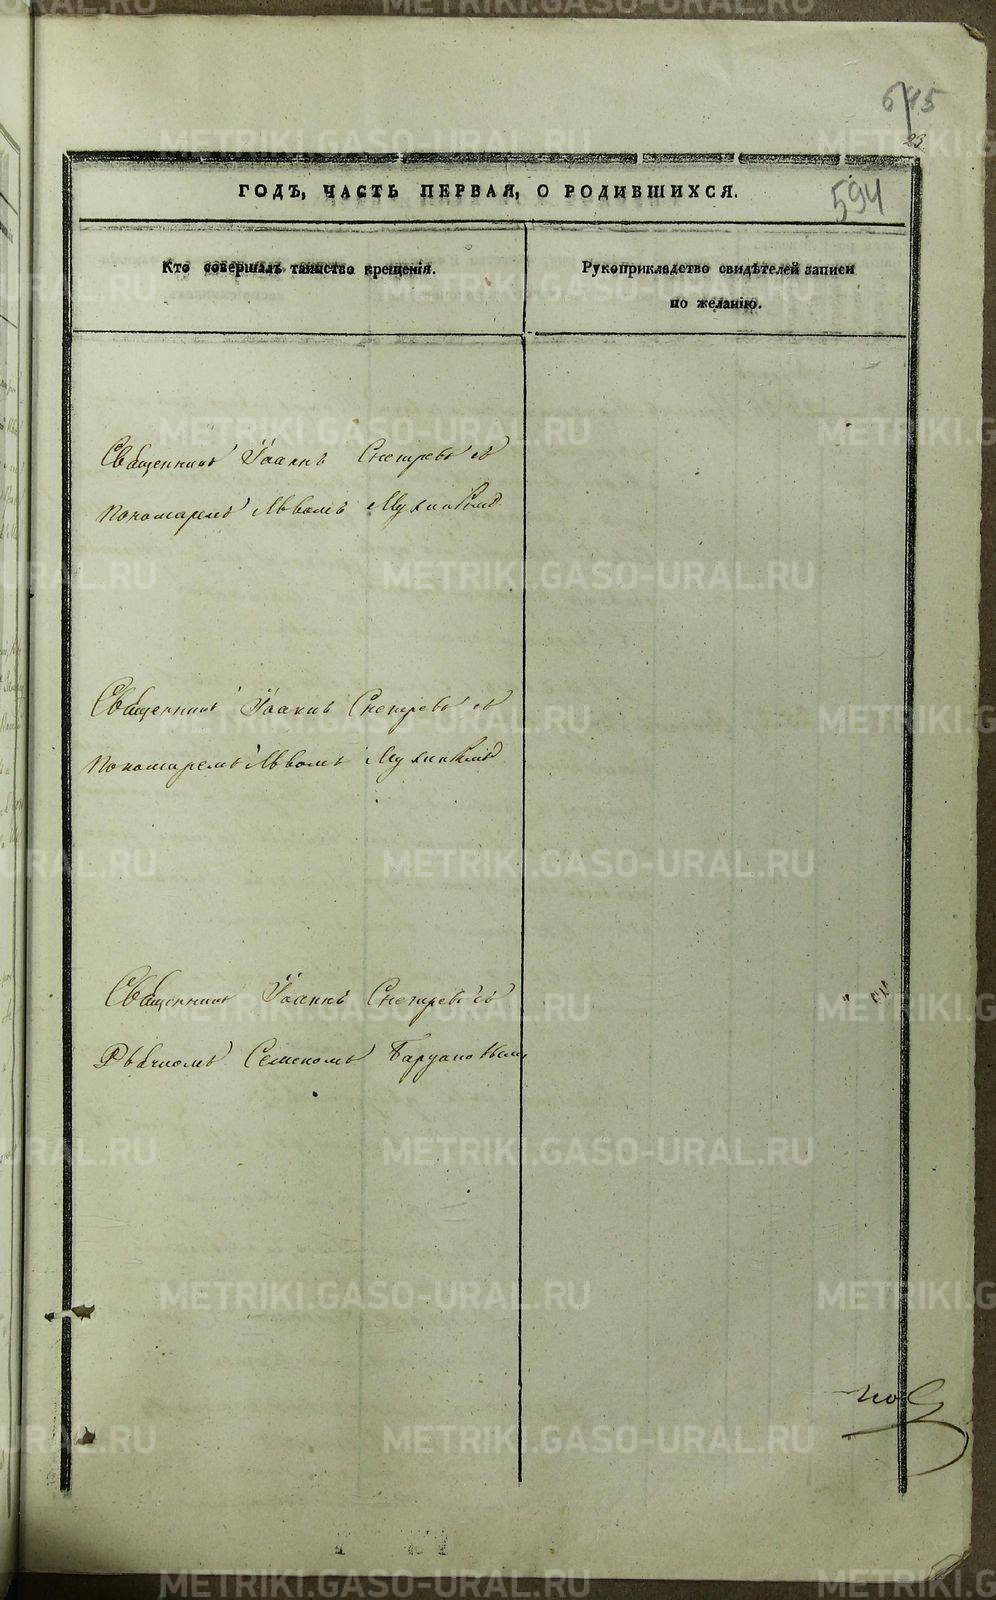 645
23
594
ГОДЪ, ЧАСТЬ ПЕРВАЯ, О РОДИВШИХСЯ.
Кто совершалъ таинство крещенія.
Рукоприкладство свидѣтелей записи
по желанію.
Священникъ Іоаннъ Снегиревъ съ
пономаремъ Львомъ Мухинымъ
Священникъ Іоаннъ Снегиревъ съ
пономаремъ Львомъ Мухинымъ
Священникъ Іоаннъ Снегиревъ съ
Дьячкомъ Семеномъ
METRIKI.GASO-URAL.RU